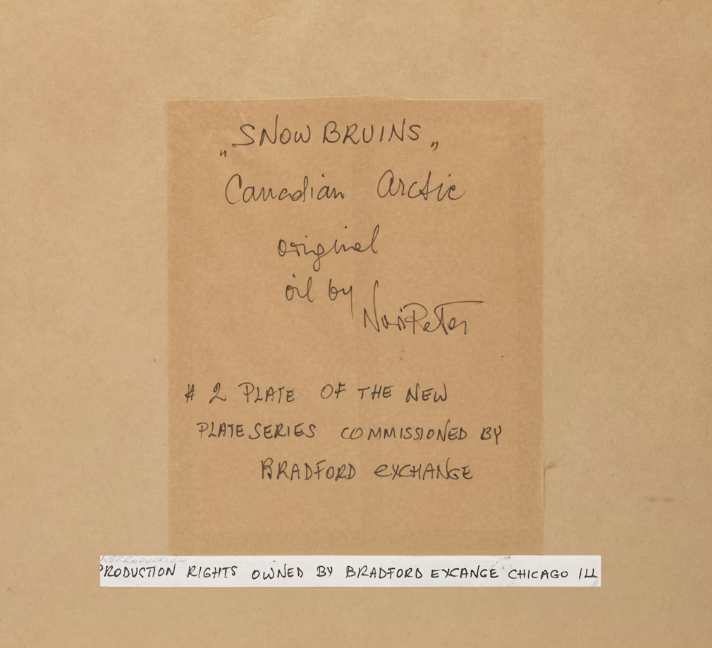 „SNOW BRUINS„
Canadian Arctic
original
oil by Nori Peter
# 2 PLATE OF THE NEW
PLATE SERIES COMMISSIONED BY
BRADFORD EXCHANGE
REPRODUCTION
PRODUCTION RIGHTS OWNED BY BRADFORD EXCANGE CHICAGO ILL